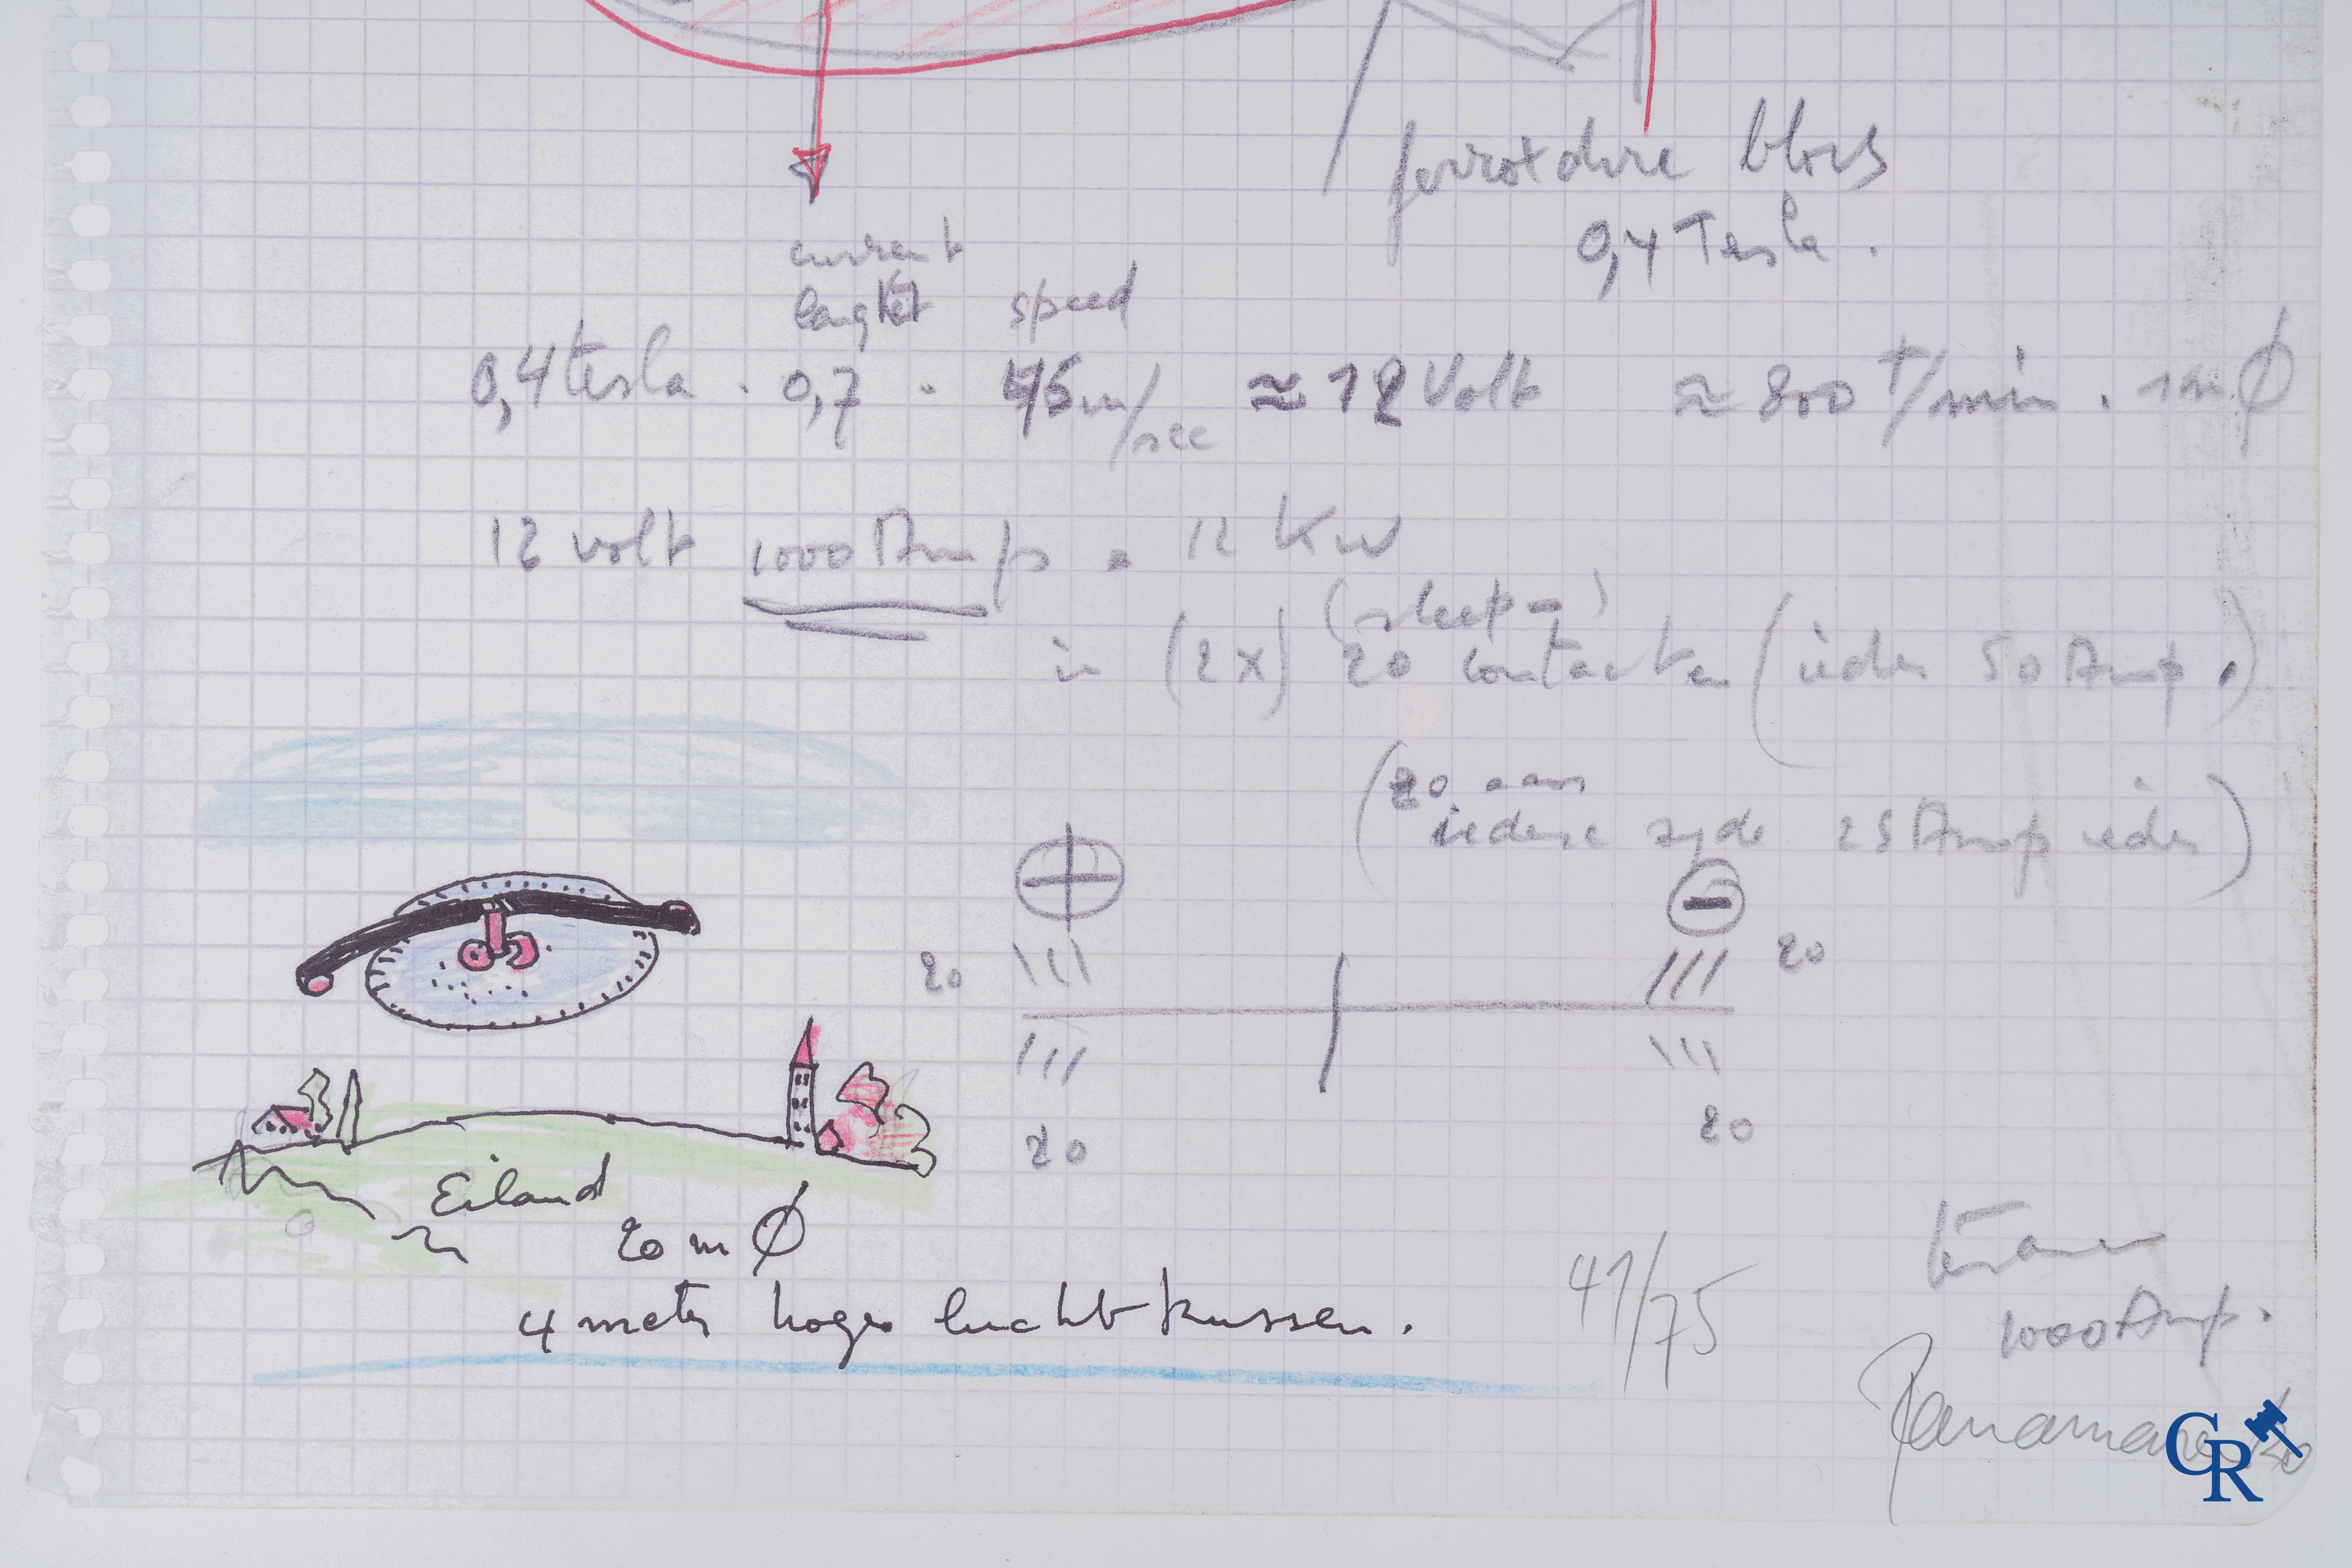 ferroxdure blocs
0,4 Tesla.
current
lenght speed
0,4 tesla . 0,7 . 45 m/sec ≈ 12 Volt ≈ 800 t/min . 1 m Ø
12 volt 1000 Amp = 12 Kw
(sleep-)
in (2x) 20 contacten (ieder 50 Amp.)
(20 aan
iedere zyde 25 Amp ieder)
+ -
20 20
20 20
Eiland
20 m Ø
4 meter hoge luchtkussen.
41/75
1000 Amp.
Panamarenko
CR